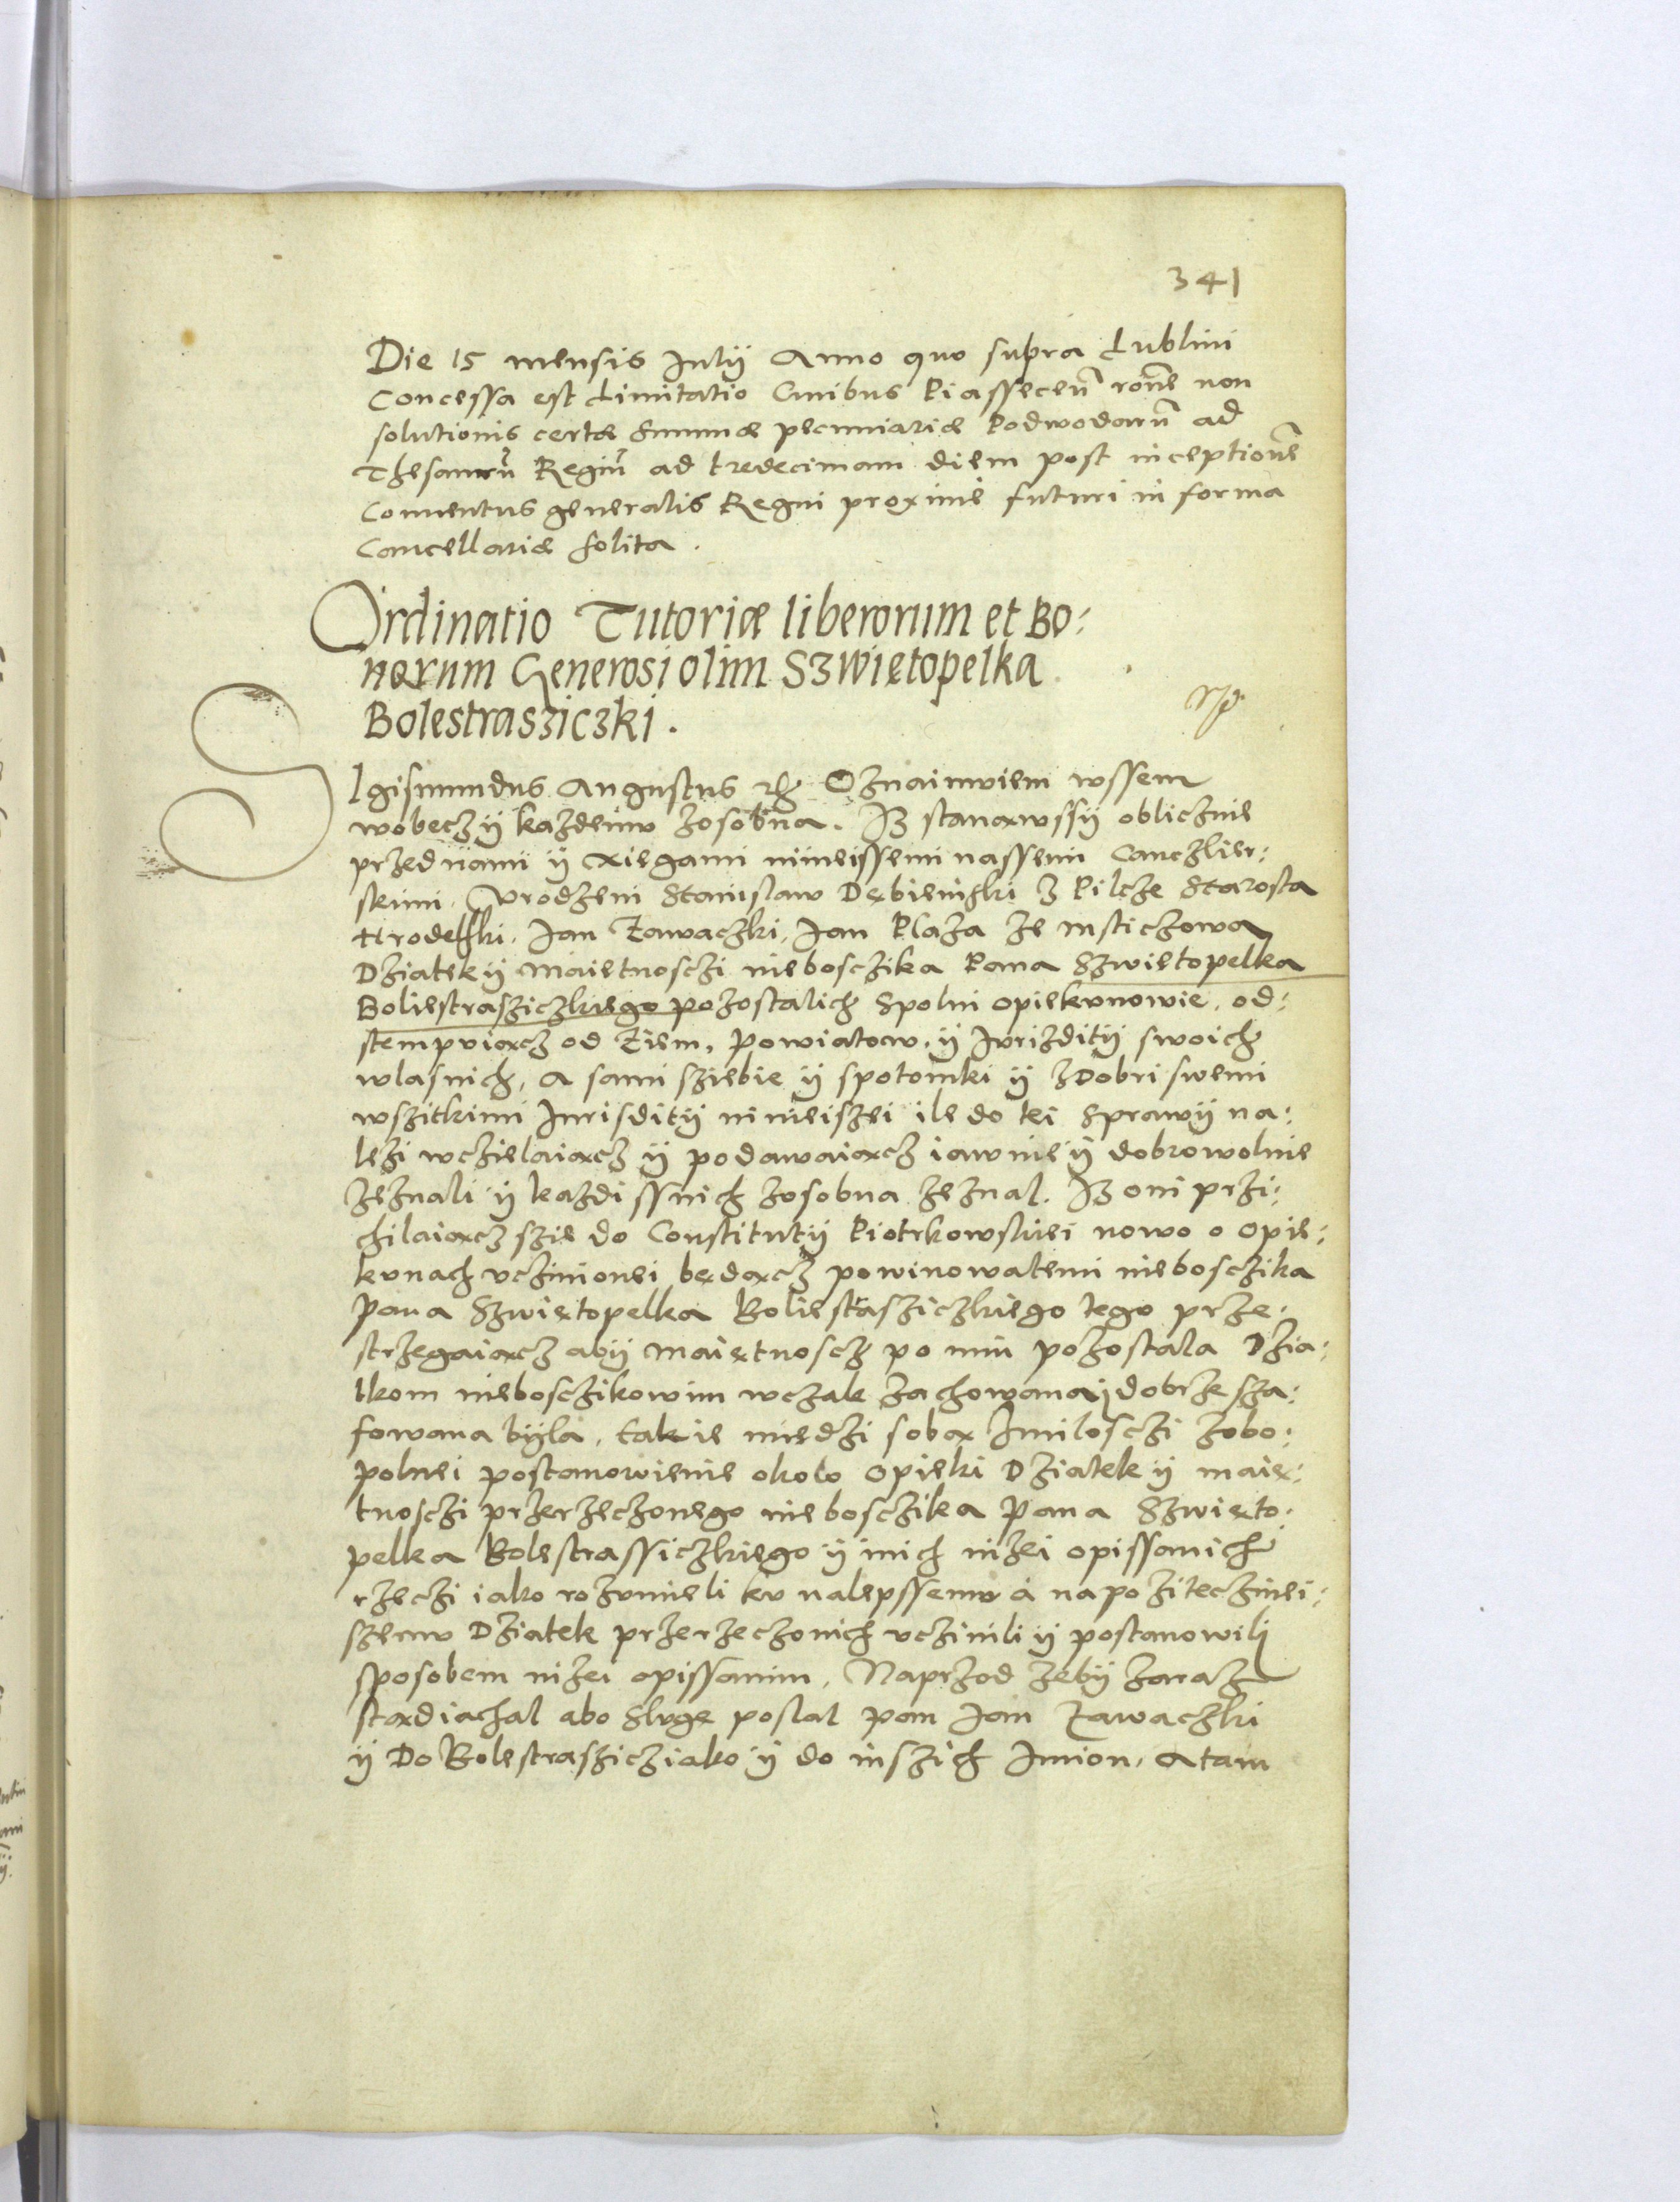 341
Die 15 mensis Julij Anno quo supra Lublini
Concessa est Limitatio Civibus Piassecen̄ rōne non
solutionis certæ summæ pecuniariæ Podwodarū ad
Thesaurū Regiū ad tredecimam diem post inceptionē
Conventus generalis Regni proxime futuri in forma
Cancellariæ solita.
Ordinatio Tutoriæ liberorum et Bo:
norum Generosi olim Szwiętopelka
Bolestrasziczki.
SIgismundus Augustus Oznaimuiem wssem
wobecz ÿ każdemv zosobna. Iż stanąwssÿ oblicznie
przed nami ÿ xięgami nineissemi nassemi Canczlier:
skimi. Vrodzeni Stanislaw Dębieński z Pilcze Starosta
Hrodelski. Jan Zawaczki, Jan Plaza ze Msticzowa
Dziatek ÿ Maiętnosczi niebosczika Pana Szwiętopelka
Boliestrasziczkiego pozostalich Spolni opiekvnowie. od:
stempviącz od Ziem, Powiatow. ÿ Jvrizditÿ swoich
wlasnich, a sami sziebie ÿ spotomki ÿ z Dobri swemi
wszitkimi Jurisditÿ ninieiszei ile do tei Sprawÿ na:
leżi wczielaiącz ÿ podawaiącz iawnie ÿ dobrowolnie
zeznali ÿ każdi ssnich zosobna zeznal. Iż oni przi:
chilaiącz szie do Constitutÿ Piotrkowskiei nowo o Opie:
kvnach vczinionei będącz powinowatemi niebosczika
Pana Szwiętopelka Boliestasziczkiego tego prze:
strzegaiącz abÿ Maiętnoscz po nim pozostala Dzia:
tkom nieboscziko­wim wczale zachowana i dobrze sza:
fowana bÿla, takie miedzi sobą zmilosczi zobo:
polnei postanowienie okolo Opieki Dziatek ÿ maię:
tnosczi przerzeczonego niebosczika Pana Szwięto:
pelka Bolestrassiczkiego ÿ inich niżei opissanich
rzeczi iako rozvmieli kv nalepssemv á napożitecznei:
szemv Dziatek przerzeczonich vczinili ÿ postanowili
sposobem niżei opissanim. Naprzod żebÿ zaraz
stądiachal abo slvgę poslal pan Jan Zawaczki
ÿ Do Bolestraszicz iako ÿ do inszich Imion. A tam